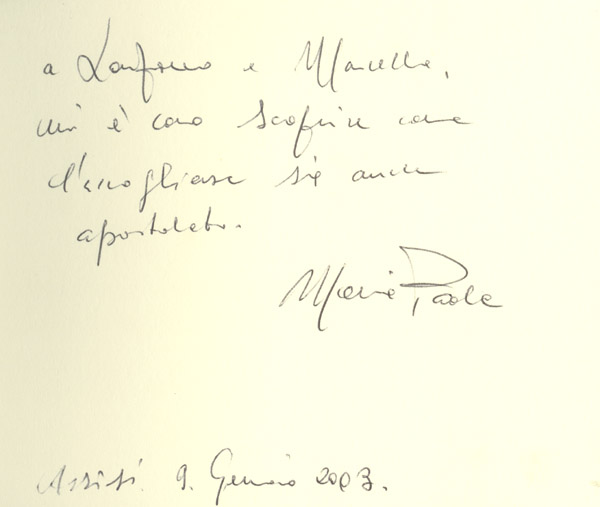 a Lanfranco e Marcella,
mi è caro scoprire come
l'accogliere sia anche
apostolato.
Maria Paola
Assisi 9. Gennaio 2003.